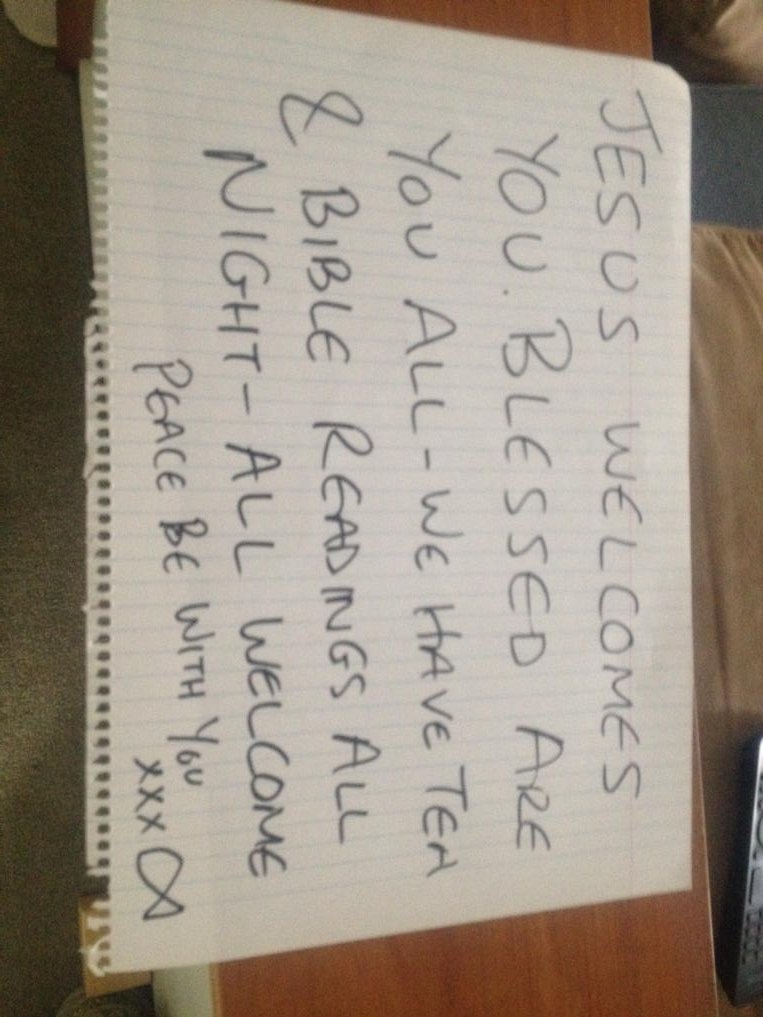 JESUS WELCOMES
YOU. BLESSED ARE
YOU ALL - WE HAVE TEA
& BIBLE READINGS ALL
NIGHT - ALL WELCOME
PEACE BE WITH YOU
xxx